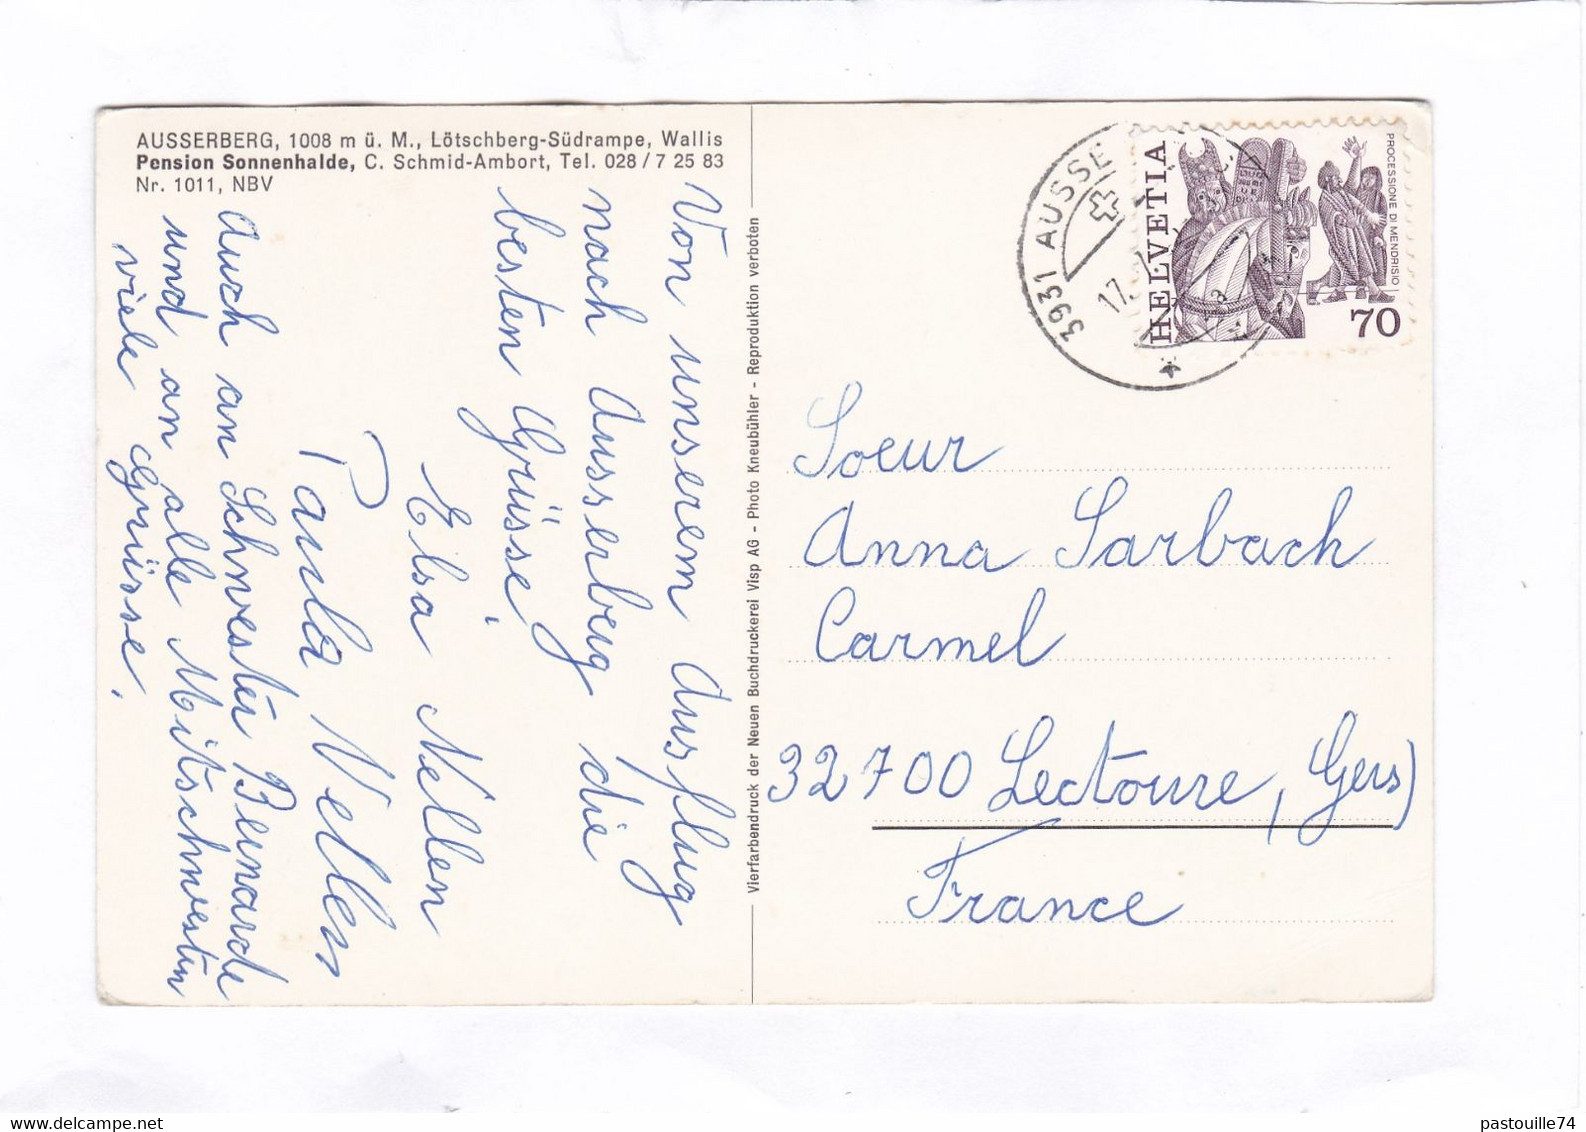 AUSSERBERG, 1008 m ü. M., Lötschberg-Südrampe, Wallis
Pension Sonnenhalde, C. Schmid-Ambort, Tel. 028 / 7 25 83
Nr. 1011, NBV
Von unserem Ausflug
nach Ausserberg die
besten Grüsse,
Elsa Nellen
Paula Nellen
Auch an Schwester Bernarde
und an alle Mitschwestern
viele Grüsse.
Vierfarbendruck der Neuen Buchdruckerei Visp AG - Photo Kneubühler - Reproduktion verboten
3931 AUSSE
17.
HELVETIA
PROCESSIONE DI MENDRISIO
70
Soeur
Anna Sarbach
Carmel
32700 Lectoure, Gers)
France
pastouille74